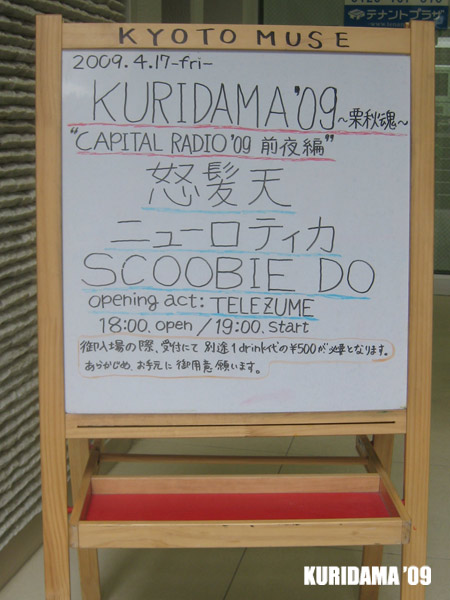 テナントプラザ
KYOTO MUSE
2009.4.17-fri-
KURIDAMA'09 ~栗秋魂~
"CAPITAL RADIO'09 前夜編"
怒髪天
ニューロティカ
SCOOBIE DO
opening act: TELEZUME
18:00. open / 19:00. start
御入場の際、受付にて 別途1drink代の¥500が必要となります。
あらかじめ、お手元に御用意願います。
KURIDAMA '09